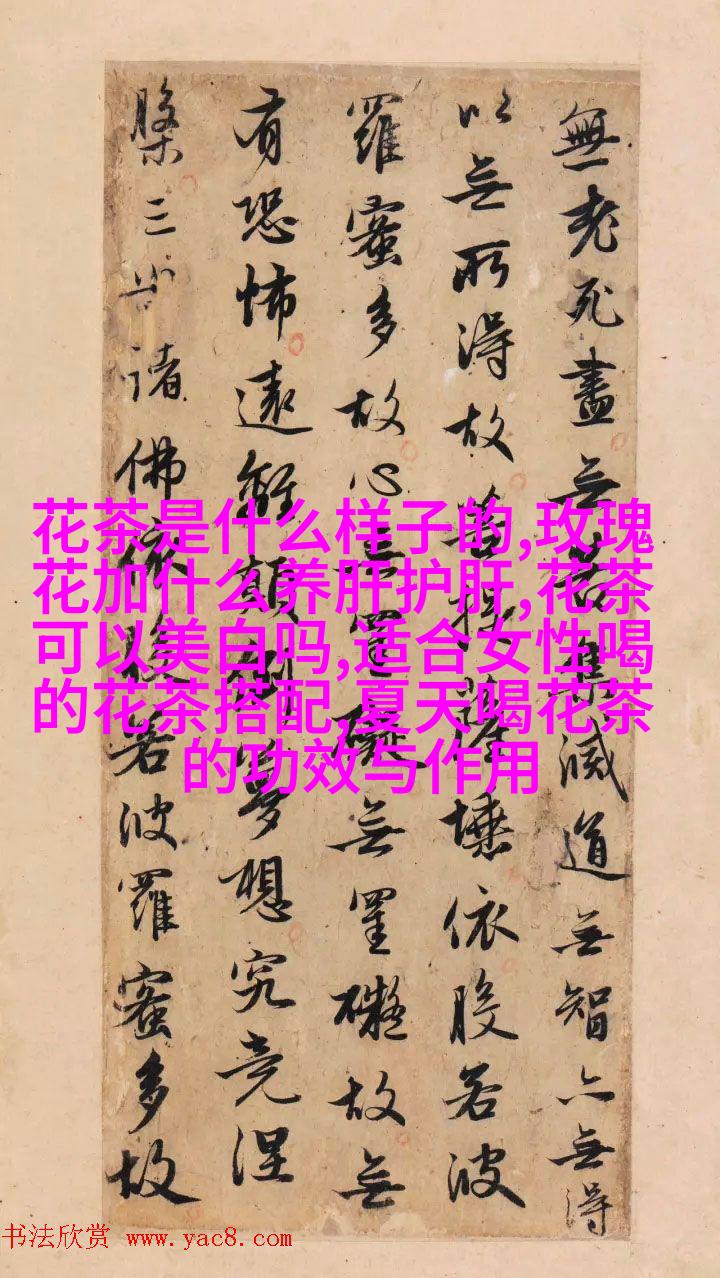 無老死盡無苦集滅道無智亦無得
以無所得故菩提薩埵依般若波
羅蜜多故心無罣礙無罣礙故無
有恐怖遠離顛倒夢想究竟涅
槃三世諸佛依般若波羅蜜多故
花茶是什么样子的,玫瑰
花加什么养肝护肝,花茶
可以美白吗,适合女性喝
的花茶搭配,夏天喝花茶
的功效与作用
书法欣赏 www.yac8.com